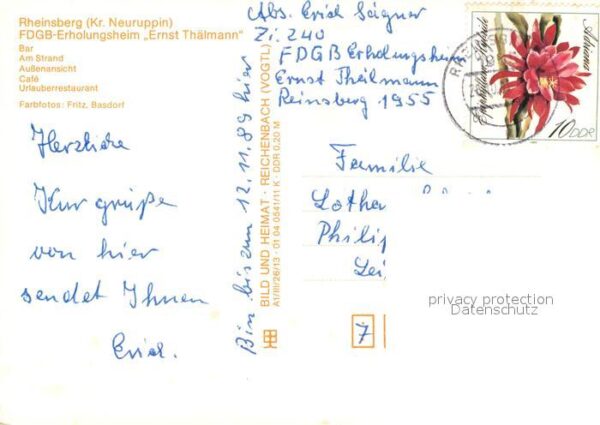 Rheinsberg (Kr. Neuruppin)
FDGB-Erholungsheim „Ernst Thälmann"
Bar
Am Strand
Außenansicht
Café
Urlauberrestaurant
Farbfotos: Fritz, Basdorf
Herzliche
Kurgrüße
von hier
sendet Ihnen
Erich.
Bin bis zum 12.11.89 hier
BILD UND HEIMAT · REICHENBACH (VOGTL)
A1/III/26/13 · 01 04 0541/11 K · DDR 0,20 M
Abs. Erich
Zi. 240
FDGB Erholungsheim
Ernst Theilmann
Reinsberg 1955
10 DDR
Familie
Lotha
Philip
Lei
7
privacy protection
Datenschutz